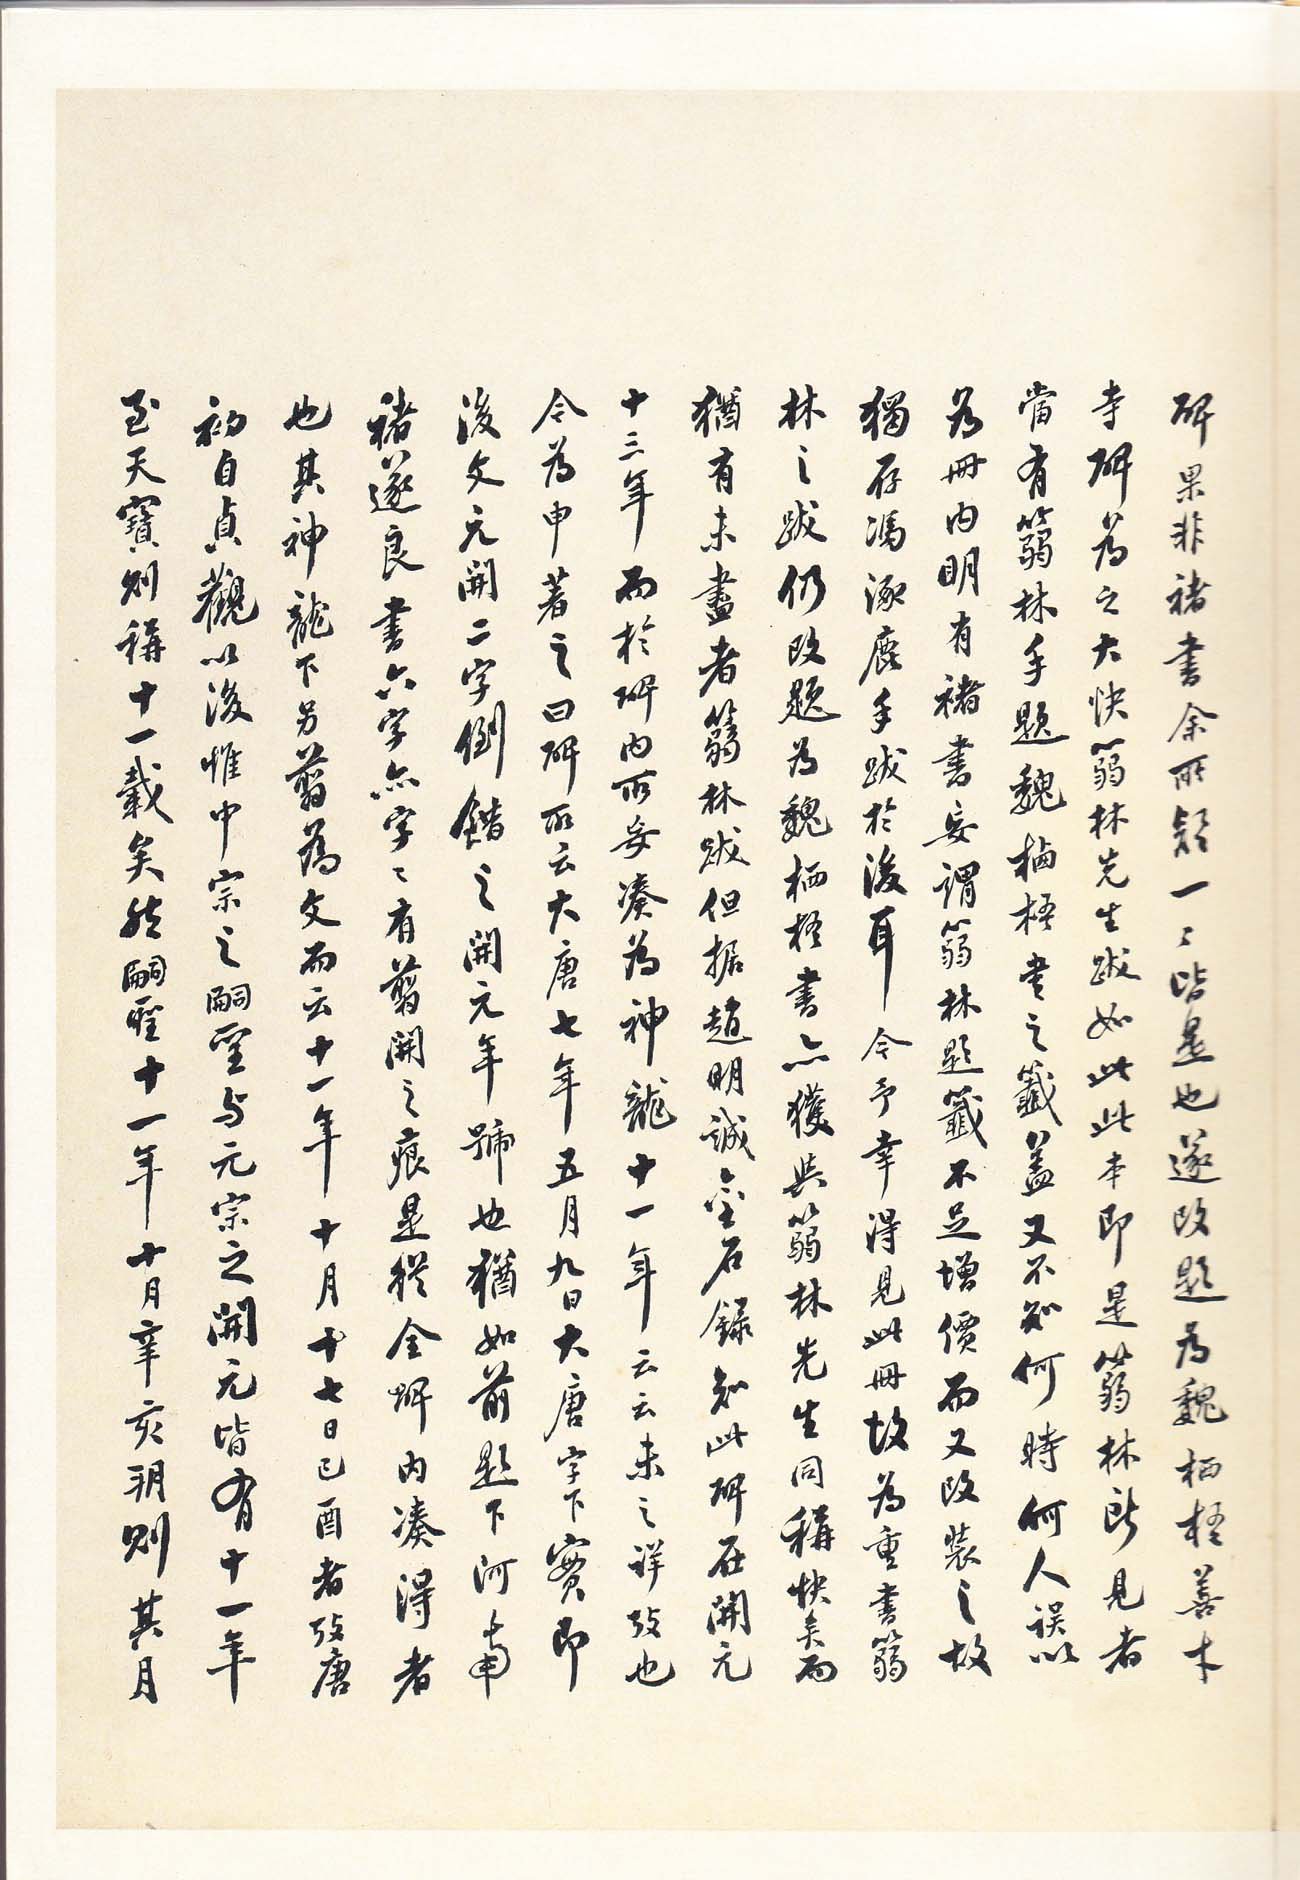 碑果非褚書余所疑一〻皆是也遂改題為魏栖梧善才
寺碑為之大快篛林先生跋如此此本即是篛林所見者
當有篛林手題魏栖梧書之籤蓋又不知何時何人誤以
為冊內明有褚書妄謂篛林題籤不足增價而又改裝之故
獨存馮涿鹿手跋於後耳今予幸得見此冊故為重書篛
林之跋仍改題為魏栖梧書亦獲與篛林先生同稱快矣而
猶有未盡者篛林跋但據趙明誠金石錄知此碑在開元
十三年而於碑內所妄湊為神龍十一年云云未之詳攷也
今為申著之曰碑所云大唐七年五月九日大唐字下實即
後文元開二字倒錯之開元年號也猶如前題下河南
褚遂良書六字亦字〻有翦開之痕是從全碑內湊得者
也其神龍下另翦為文而云十一年十月十七日己酉者攷唐
初自貞觀以後惟中宗之嗣聖与元宗之開元皆有十一年
至天寶則稱十一載矣然嗣聖十一年十月辛亥朔則其月